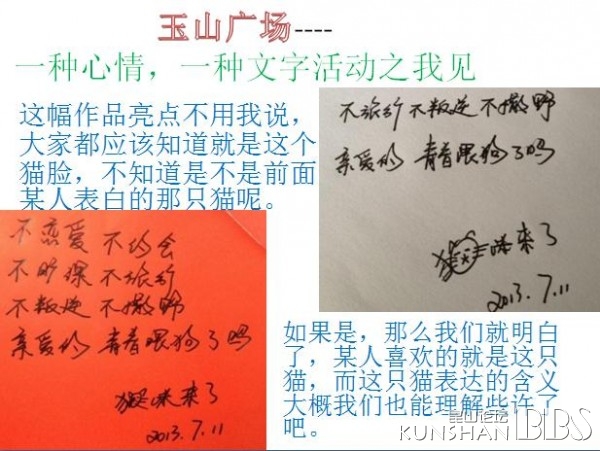 玉山广场----
一种心情，一种文字活动之我见
这幅作品亮点不用我说，
大家都应该知道就是这个
猫脸，不知道是不是前面
某人表白的那只猫呢。
不旅行 不叛逆 不撒野
亲爱的 青春喂狗了吗
猫咪来了
2013.7.11
不恋爱 不约会
不旷课 不旅行
不叛逆 不撒野
亲爱的 青春喂狗了吗
猫咪来了
2013.7.11
如果是，那么我们就明白
了，某人喜欢的就是这只
猫，而这只猫表达的含义
大概我们也能理解些许了
吧。
昆山论坛
KUNSHAN BBS